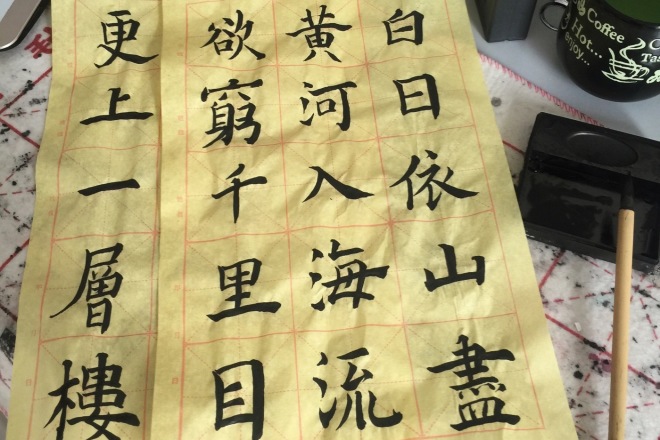 白日依山盡
黃河入海流
欲窮千里目
更上一層樓
Coffee
Hot...
enjoy...